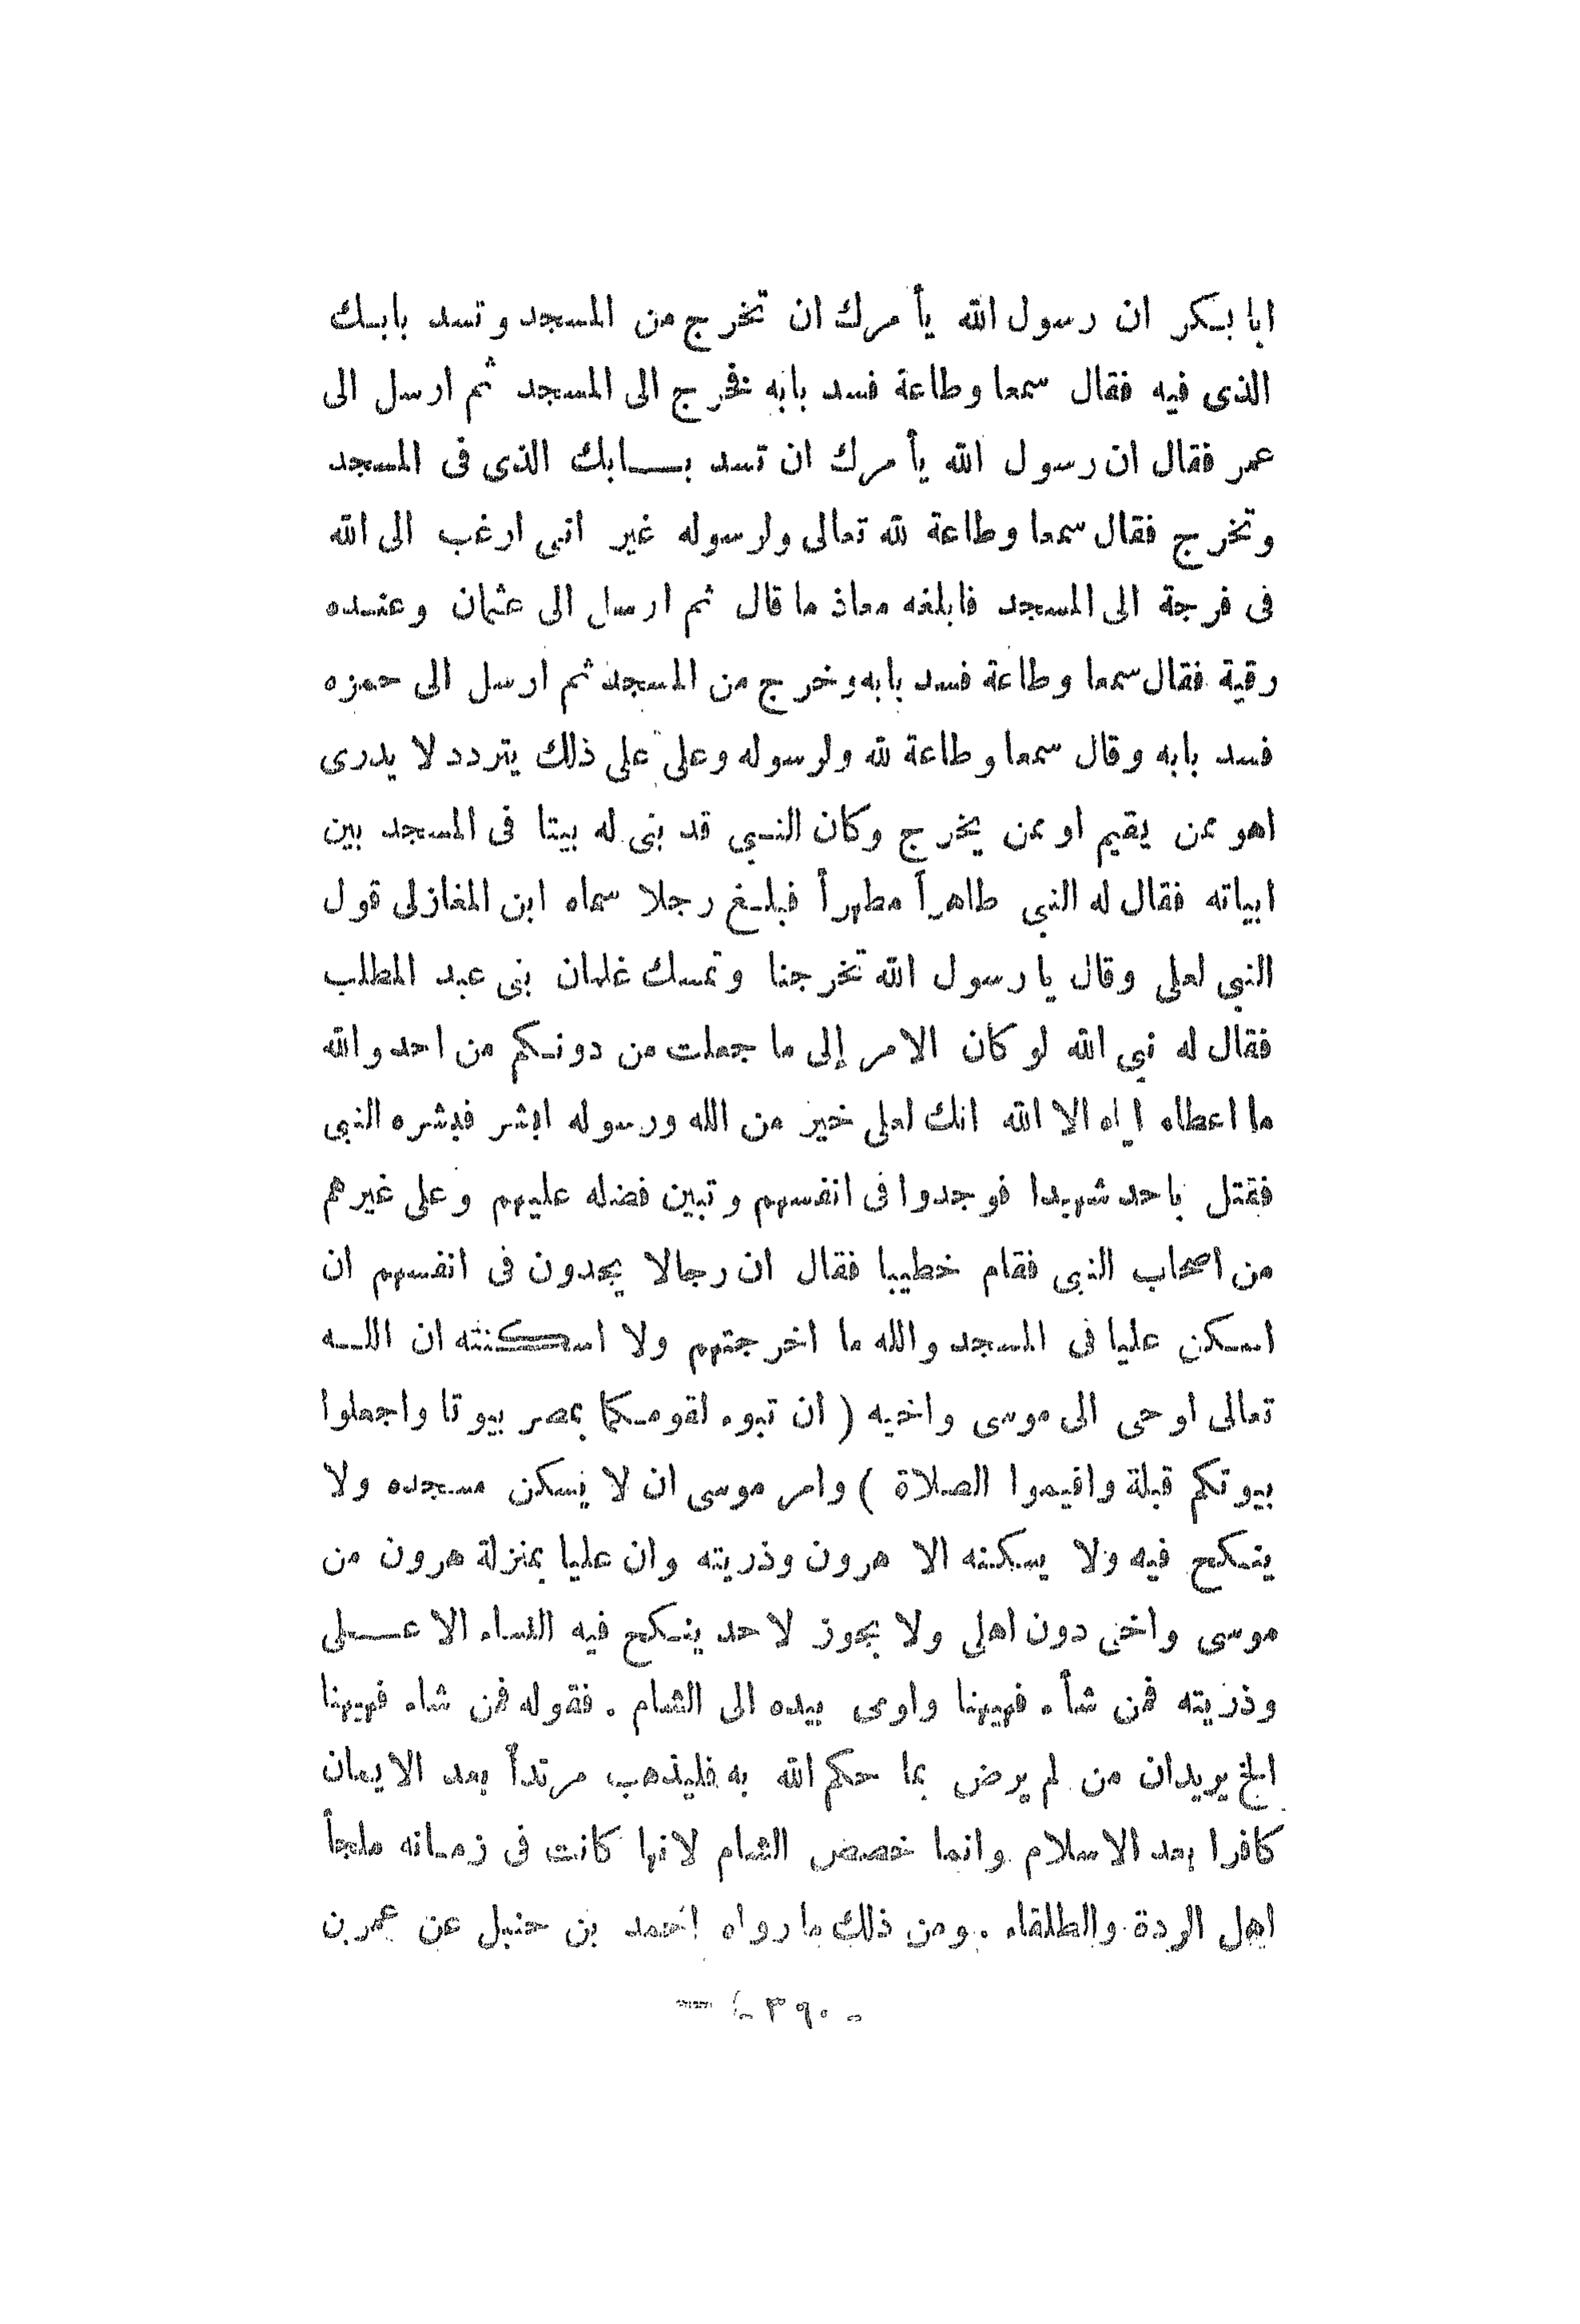 ابا بكر ان رسول الله يأمرك ان تخرج من المسجد وتسد بابك
الذى فيه فقال سمعا وطاعة فسد بابه فخرج الى المسجد ثم ارسل الى
عمر فقال ان رسول الله يأمرك ان تسد بابك الذى فى المسجد
وتخرج فقال سمعا وطاعة لله تعالى ولرسوله غير انى ارغب الى الله
فى فرجة الى المسجد فابلغه معاذ ما قال ثم ارسل الى عثمان وعنده
رقية فقال سمعا وطاعة فسد بابه وخرج من المسجد ثم ارسل الى حمزه
فسد بابه وقال سمعا وطاعة لله ولرسوله وعلى على ذلك يتردد لا يدرى
اهو ممن يقيم او ممن يخرج وكان النبي قد بنى له بيتا فى المسجد بين
ابياته فقال له النبي طاهراً مطهراً فبلغ رجلا سماه ابن المغازلى قول
النبي لعلى وقال يا رسول الله تخرجنا وتمسك غلمان بنى عبد المطلب
فقال له نبي الله لو كان الامر إلى ما جعلت من دونكم من احد والله
ما اعطاه اياه الا الله انك لعلى خير من الله ورسوله ابشر فبشره النبي
فقتل باحد شهيدا فوجدوا فى انفسهم وتبين فضله عليهم وعلى غيرهم
من اصحاب النبي فقام خطيبا فقال ان رجالا يجدون فى انفسهم ان
اسكن عليا فى المسجد والله ما اخرجتهم ولا اسكنته ان الله
تعالى اوحى الى موسى واخيه ( ان تبوء لقومكما بمصر بيوتا واجعلوا
بيوتكم قبلة واقيموا الصلاة ) وامر موسى ان لا يسكن مسجده ولا
ينكح فيه ولا يسكنه الا هرون وذريته وان عليا بمنزلة هرون من
موسى واخى دون اهلى ولا يجوز لاحد ينكح فيه النساء الا على
وذريته فمن شأء فهيهنا واوى بيده الى الشام . فقوله فمن شاء فهيهنا
الخ يريدان من لم يرض بما حكم الله به فليذهب مرتداً بعد الايمان
كافرا بعد الاسلام وانما خصص الشام لانها كانت فى زمانه ملجأ
اهل الردة والطلقاء . ومن ذلك ما رواه احمد بن حنبل عن عمر بن
- ٣٩٠ -